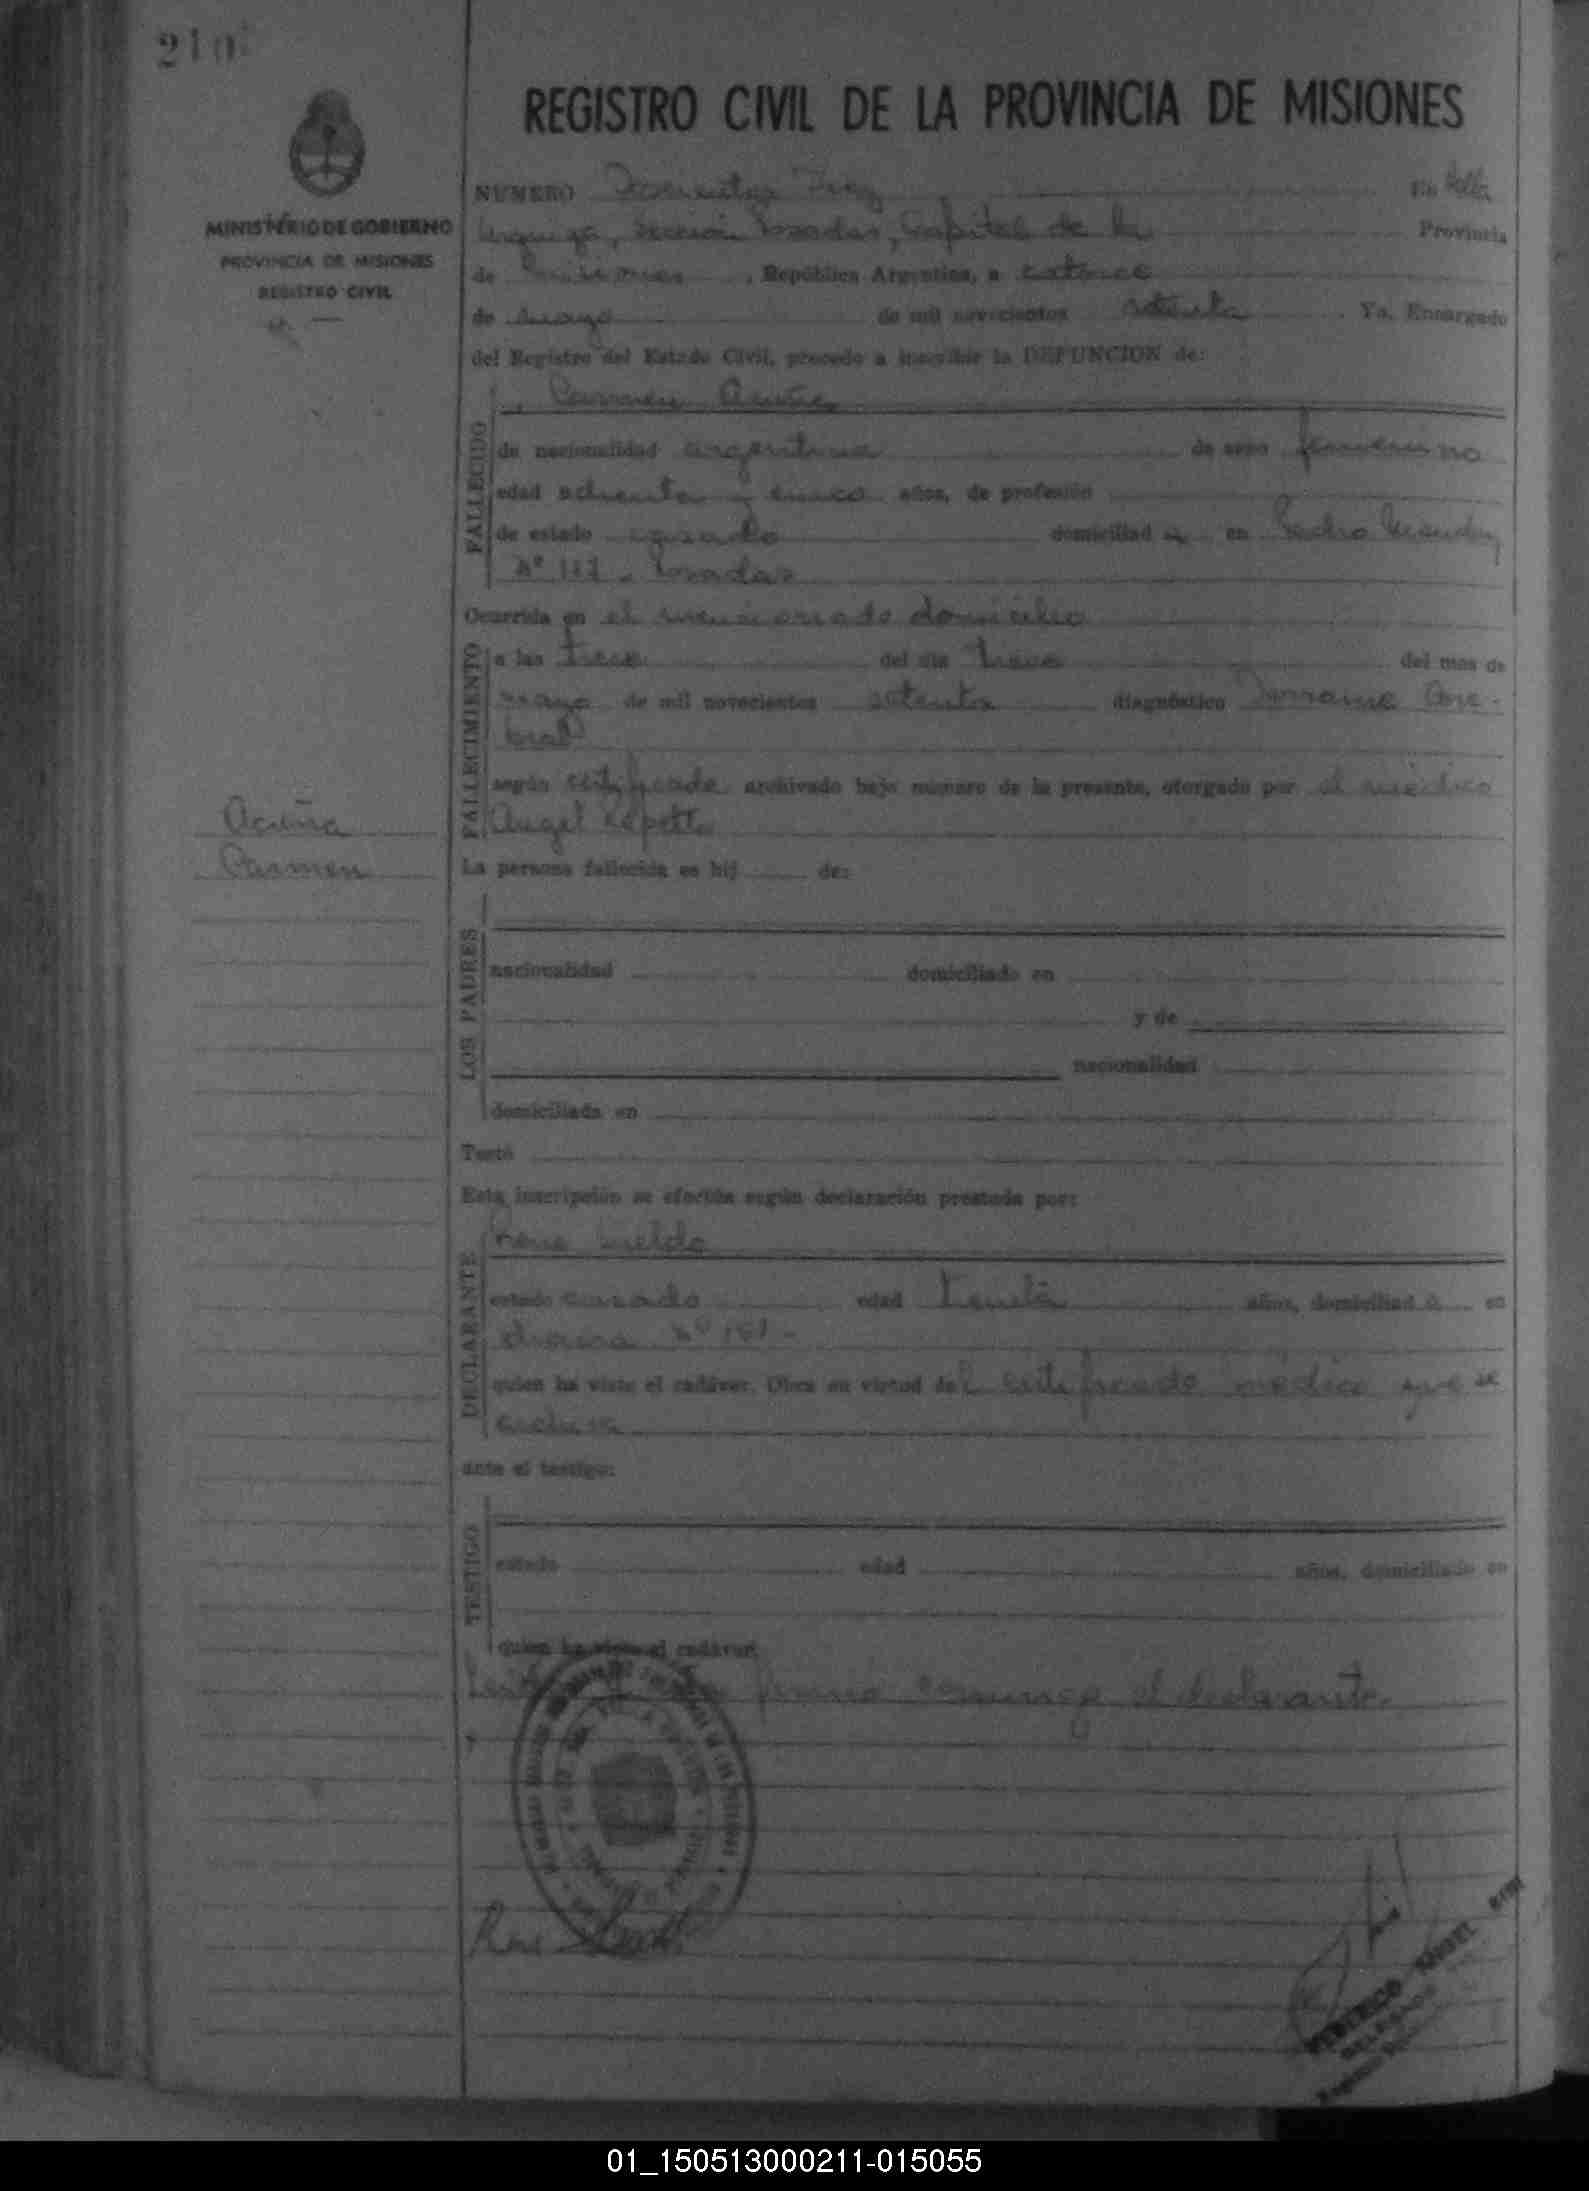 210
REGISTRO CIVIL DE LA PROVINCIA DE MISIONES
MINISTERIO DE GOBIERNO
PROVINCIA DE MISIONES
REGISTRO CIVIL
NUMERO Doscientos Diez En Villa
Urquiza, Sección Posadas, Capital de la Provincia
de Misiones, República Argentina, a catorce
de mayo de mil novecientos setenta. Yo, Encargado
del Registro del Estado Civil, procedo a inscribir la DEFUNCION de:
Carmen Acuña
FALLECIDO
de nacionalidad argentina de sexo femenino
edad ochenta y cinco años, de profesión
de estado casado domiciliad a en Pedro Mendez
Nº 117 - Posadas
Ocurrida en el mencionado domicilio
FALLECIMIENTO
a las trece del día trece del mes de
mayo de mil novecientos setenta diagnóstico Derrame Cere-
bral
según certificado archivado bajo número de la presente, otorgado por el médico
Angel Repetto
Acuña
Carmen
La persona fallecida es hij de:
LOS PADRES
nacionalidad domiciliado en
y de
nacionalidad
domiciliada en
Testó
Esta inscripción se efectúa según declaración prestada por:
DECLARANTE
Rene
estado casado edad treinta años, domiciliad o en
Nº
quien ha visto el cadáver. Obra en virtud del certificado médico que se
archiva
ante el testigo:
TESTIGO
estado edad años, domiciliado en
quien ha visto el cadáver.
firmó conmigo el declarante.
Rene
FEDERICO ANGEL
DELEGADO
01_150513000211-015055